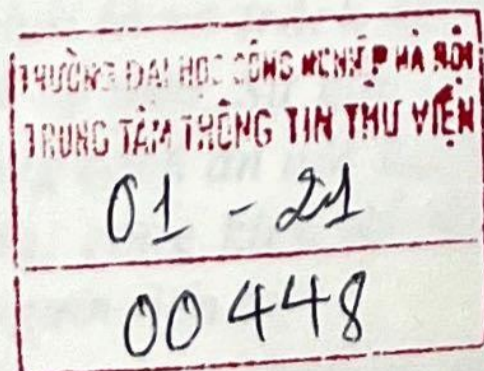 TRƯỜNG ĐẠI HỌC CÔNG NGHIỆP HÀ NỘI
TRUNG TÂM THÔNG TIN THƯ VIỆN
01 - 21
00448